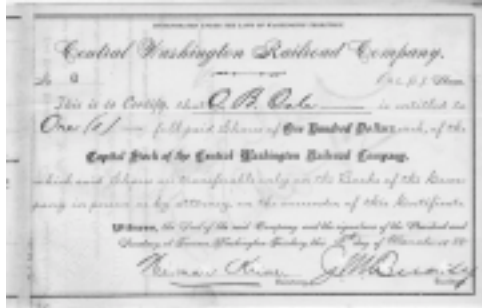 INCORPORATED UNDER THE LAWS OF WASHINGTON TERRITORY
Central Washington Railroad Company.
No 9
This is to Certify, that O. B. is entitled to
One (1) full paid Shares of One Hundred Dollars each, of the
Capital Stock of the Central Washington Railroad Company,
which said Shares are transferable only on the Books of the Com-
pany in person or by attorney on the surrender of this Certificate
Witness, the Seal of the said Company and the signatures of the President and
Secretary, at Washington Territory, the day of March 18